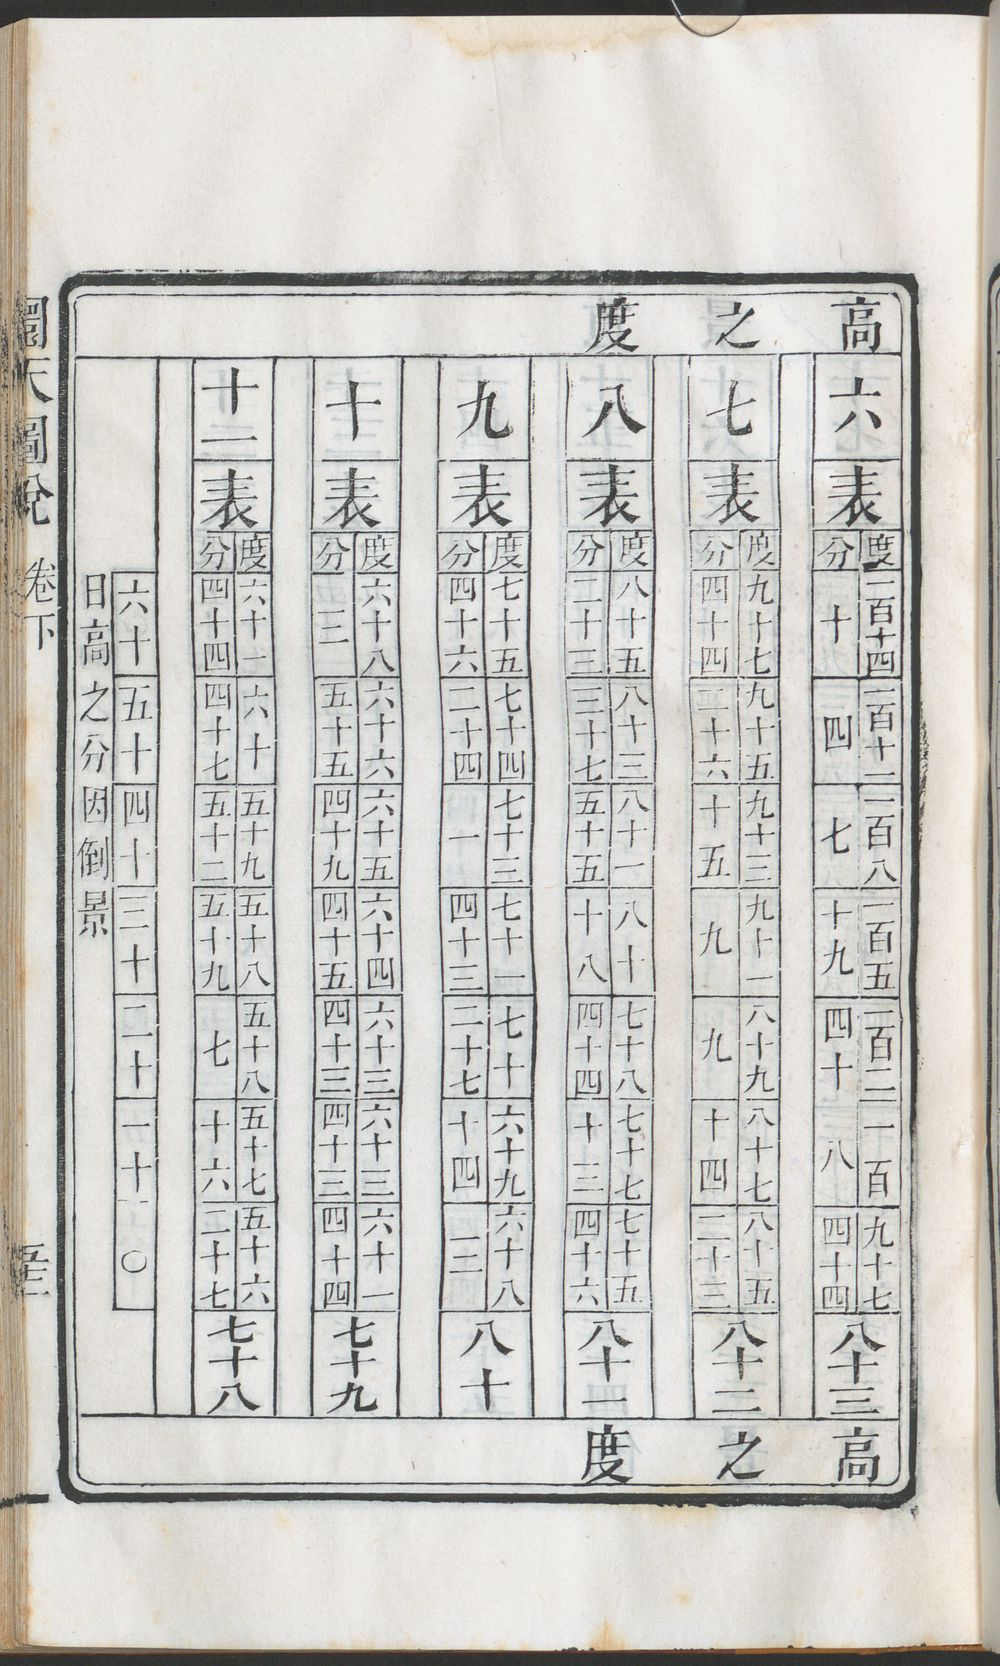 高之度
六
表
度 一百十四 一百十二 一百八 一百五 一百二 一百 九十七
分 十 四 七 十九 四十 八 四十四
八十三
七
表
度 九十七 九十五 九十三 九十一 八十九 八十七 八十五
分 四十四 二十六 十五 九 九 十四 二十三
八十二
八
表
度 八十五 八十三 八十一 八十 七十八 七十七 七十五
分 二十三 三十七 五十五 十八 四十四 十三 四十六
八十一
九
表
度 七十五 七十四 七十三 七十一 七十 六十九 六十八
分 四十六 二十四 一 四十三 二十七 十四 三
八十
十
表
度 六十八 六十六 六十五 六十四 六十三 六十三 六十一
分 三 五十五 四十九 四十五 四十三 四十三 四十四
七十九
十一
表
度 六十一 六十 五十九 五十八 五十八 五十七 五十六
分 四十四 四十七 五十二 五十九 七 十六 二十七
七十八
六十 五十 四十 三十 二十 一十 〇
日高之分因倒景
高之度
圜天圖說 卷下